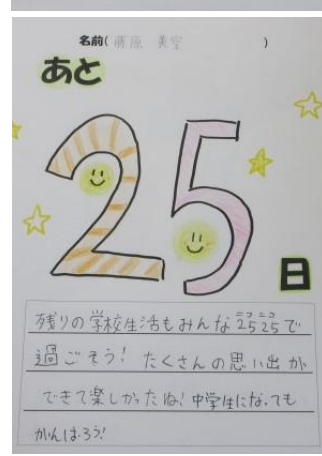 名前(藤原 美空 )
あと
25
日
残りの学校生活もみんな2525で
ニコニコ
過ごそう! たくさんの思い出が
できて楽しかったね!中学生になっても
がんばろう!